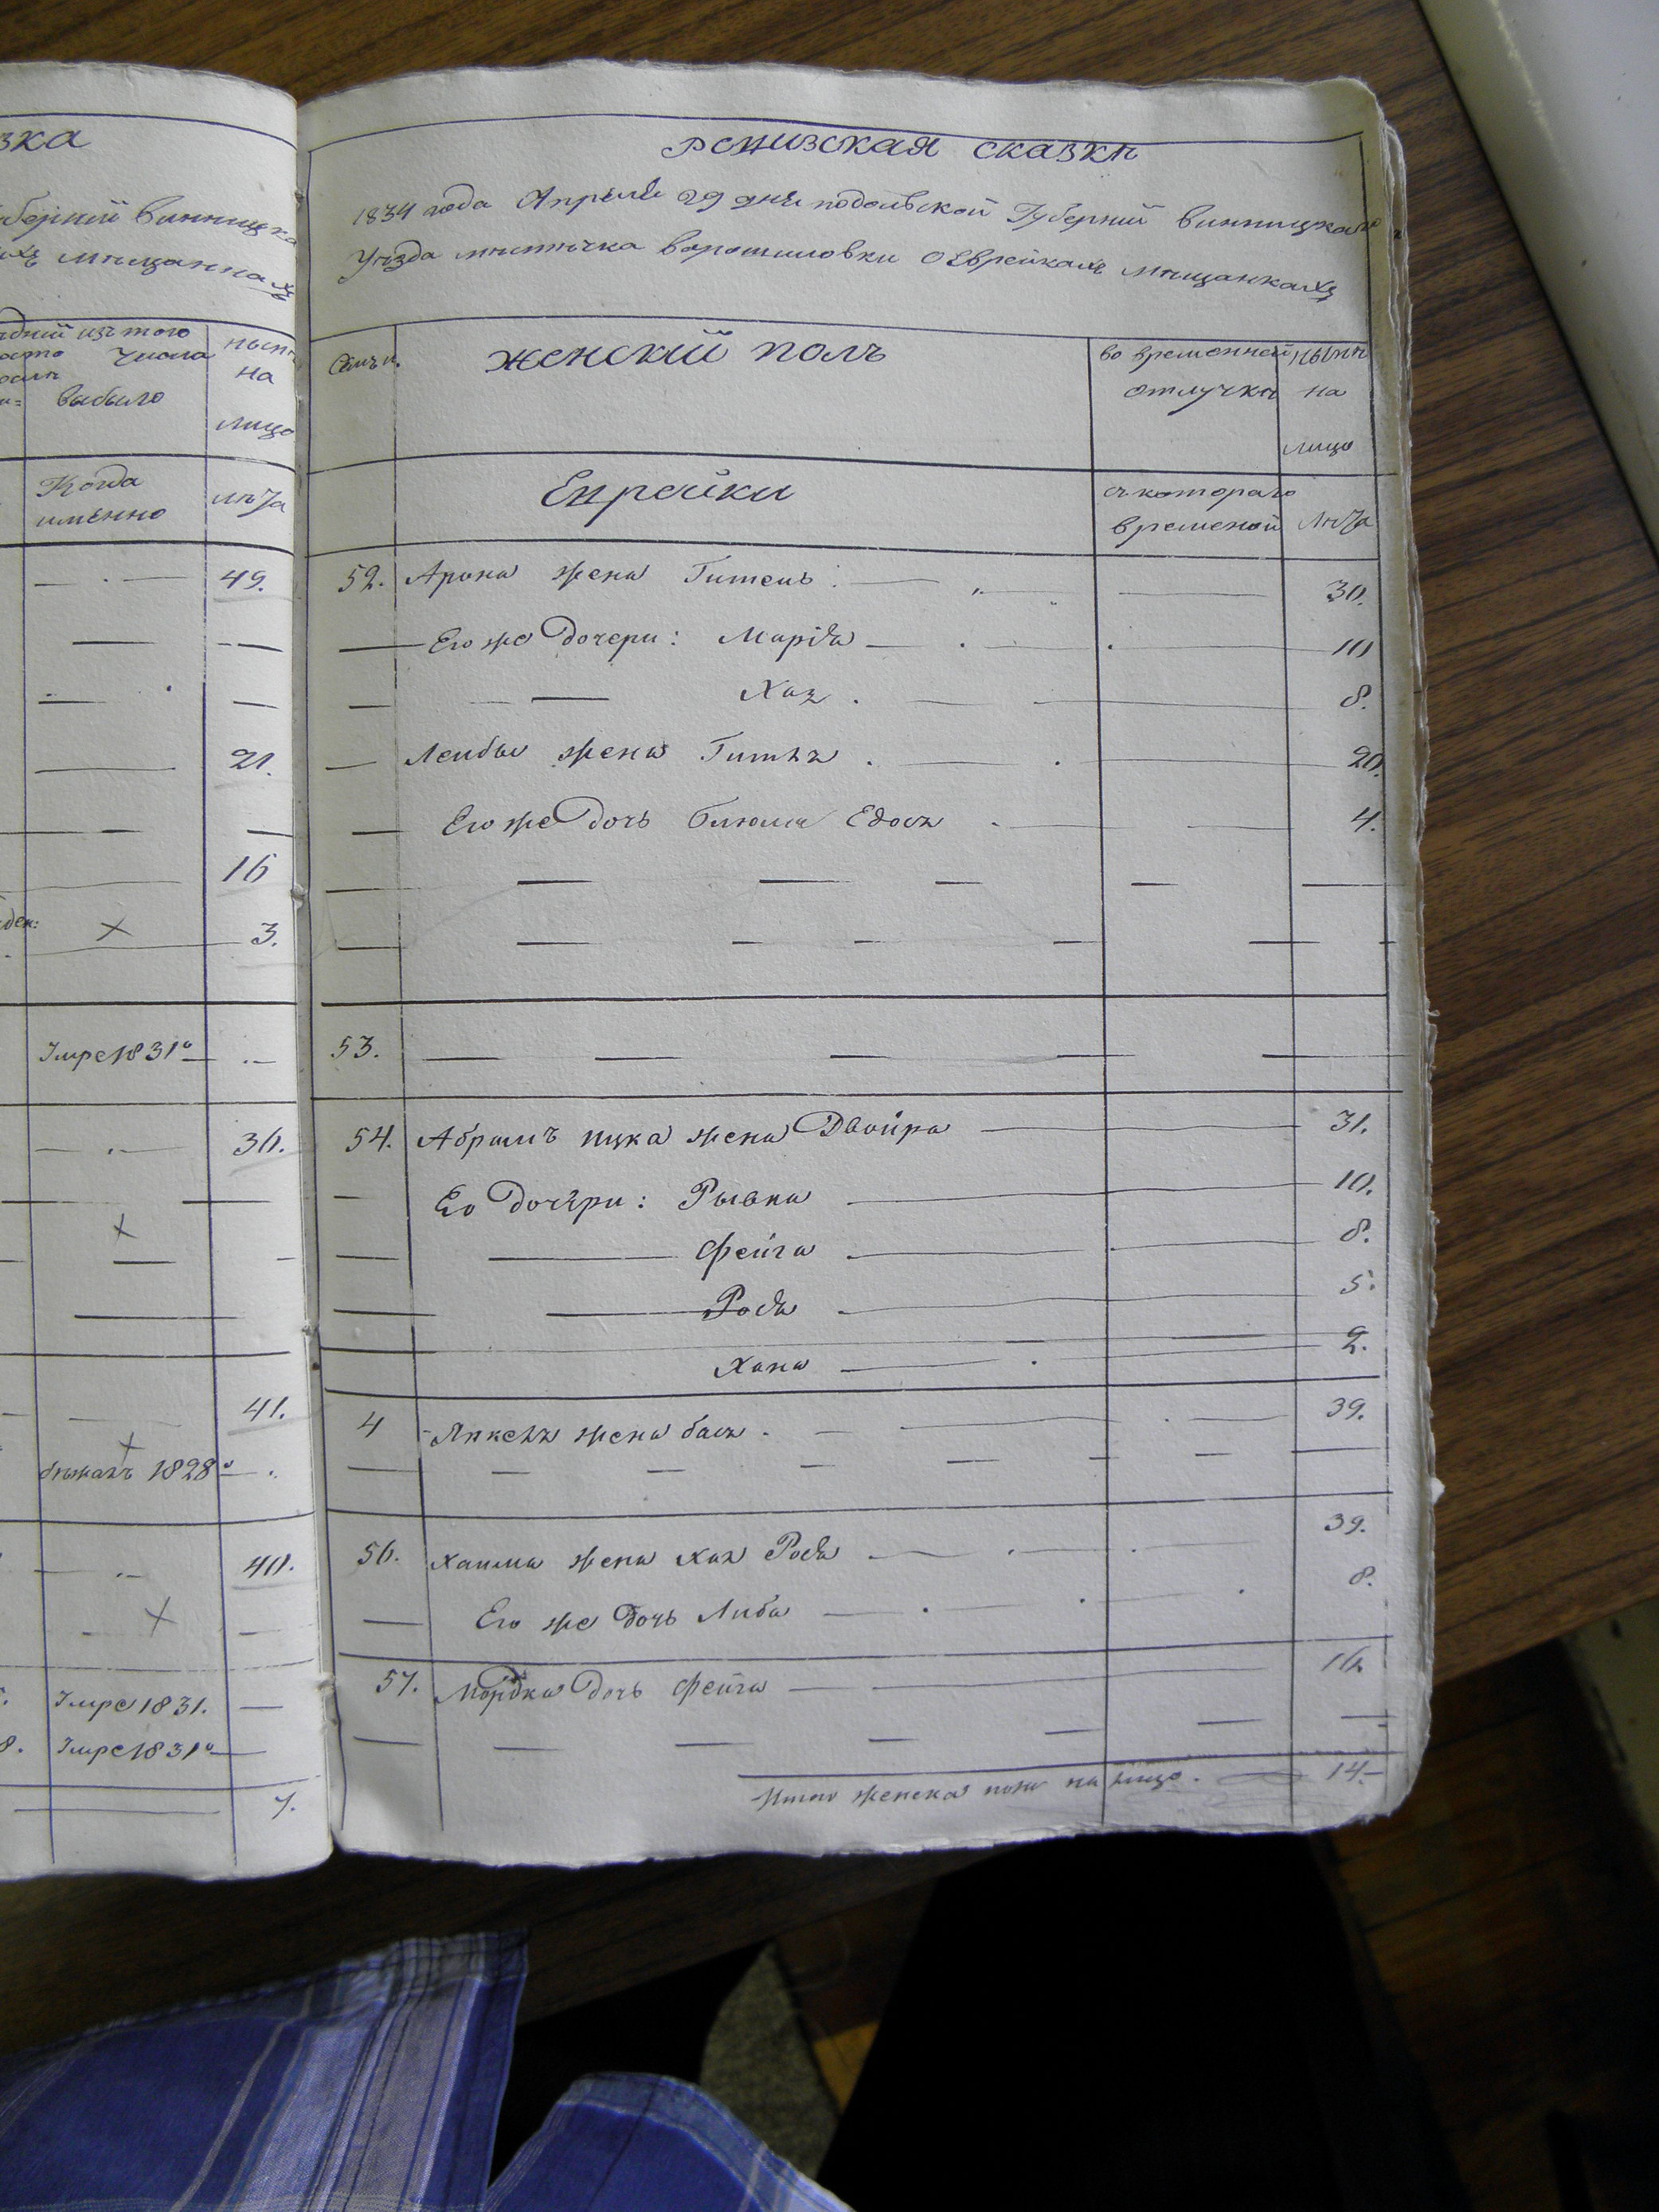 зка
берніи Винницка
хъ мѣщанка
изъ того
числа
выбыло
нынѣ
на
лицо
Когда
именно
лѣта
49.
21.
16
3.
Умре 1831º
30.
41.
бѣжалъ 1828º
40.
Умре 1831.
8. Умре 1831º
7.
Ревизская сказка
1834 года Апреля 29 дня подольской Губерніи винницкаго
Уѣзда мѣстѣчка ворошиловки О Еврейкахъ мѣщанкахъ
Семьи. женскій полъ во временной нынѣ
отлучкѣ на
лицо
Еврейки съ котораго
временой лѣта
52. Арона жена Гитель 30.
Его же дочери: Марідя 10
Хая 8.
Лейбы жена Гитля 20.
Его же дочь Блюма Едося 4.
53.
54. Абрамъ ицка жена Двойра 31.
Ео дочери: Рывка 10.
Фейга 8.
Рося 5.
Хана 2.
4 Янкеля жена бася 39.
56. Хаима жена хая Рося 39.
Его же дочь Либа 8.
57. Мордка дочь Фейга 16
Итого женска пола на лицо. 14